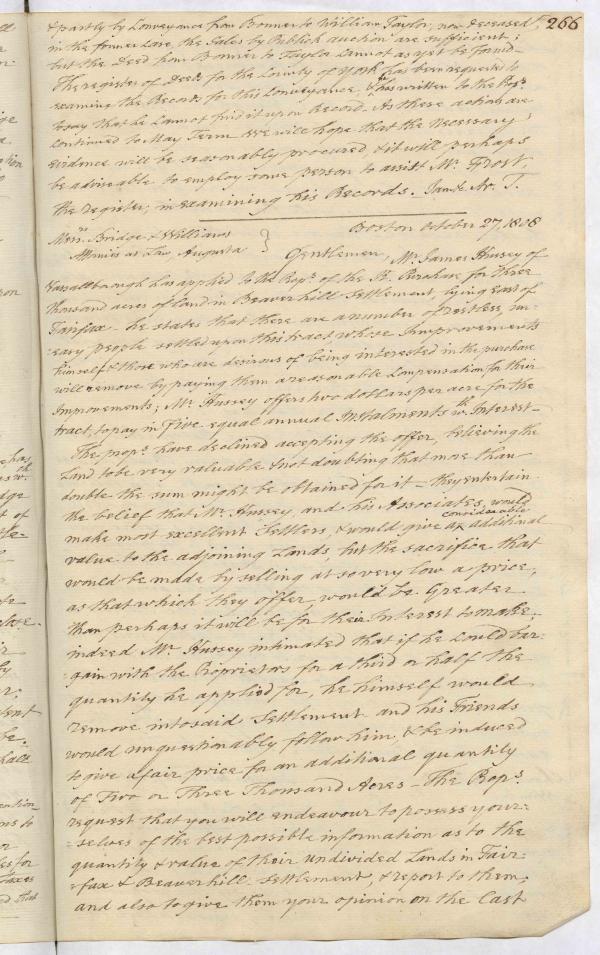 266
& partly by Conveyance from Bonner to William Taylor, now deceased,
in the former Case, the Sales by Publick auction are sufficient;
but the Deed from Bonner to Taylor Cannot as yet be found—
The register of Deeds for the County of York has been requested to
examine the Records for this Conveyance, & he has written to the Propr.
to say that he Cannot find it upon Record. As these actions are
continued to May Term we will hope that the Necessary
evidence will be seasonably procured & it will perhaps
be adviseable to employ some person to assist Mr. Frost,
the register, in examining his Records.
Boston October 27, 1808
Messrs. Bridge & Williams
Attornies at Law, Augusta }
Gentlemen, Mr. James Hussey of
Vassalborough has applied to the Props. of the K. Purchase for three
thousand acres of land in Beaverhill Settlement, lying east of
Fairfax — he states that there are a number of restless, un-
-easy people settled upon this tract, whose Improvements
himself & those who are desirous of being interested in the purchase
will remove by paying them a reasonable Compensation for their
Improvements; Mr. Hussey offers two dollars per acre for the
tract, to pay in Five equal annual Instalments wth. Interest—
The props. have declined accepting the offer, believing the
Land to be very valuable & not doubting that more than
double the sum might be obtained for it — they entertain
the belief that Mr. Hussey and his Associates, would
make most excellent Settlers, & would give a considerable additional
value to the adjoining Lands, but the sacrifice that
would be made by selling at so very low a price,
as that which they offer, would be Greater
than perhaps it will be for their Interest to make;
indeed Mr. Hussey intimated that if he Could bar-
-gain with the Proprietors for a third or half the
quantity he applied for, he himself would
remove into said Settlement and his Friends
would unquestionably follow him, & be induced
to give a fair price for an additional quantity
of Two or Three Thousand Acres — The Props.
request that you will endeavour to possess your-
-selves of the best possible information as to the
quantity & value of their undivided Lands in Fair-
-fax & Beaverhill Settlement, & report to them;
and also to give them your opinion on the Cast